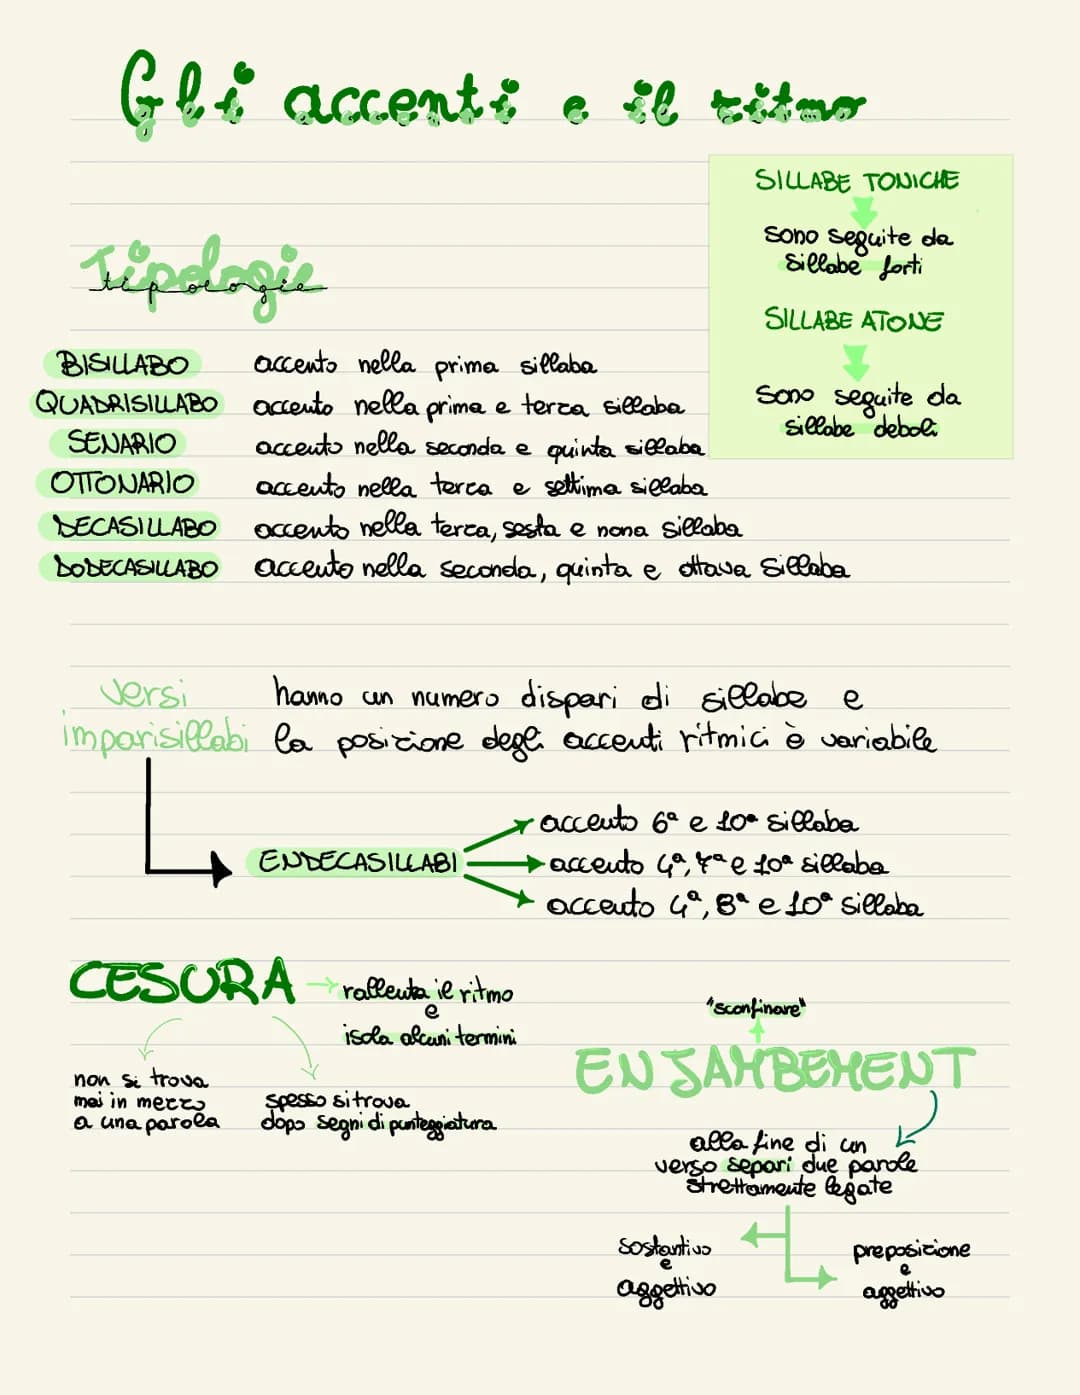 Gli accenti e il ritmo
SILLABE TONICHE
sono seguite da
sillabe forti
SILLABE ATONE
sono seguite da
sillabe deboli
Tipologie
tipologie
BISILLABO accento nella prima sillaba
QUADRISILLABO accento nella prima e terza sillaba
SENARIO accento nella seconda e quinta sillaba
OTTONARIO accento nella terza e settima sillaba
DECASILLABO accento nella terza, sesta e nona sillaba
DODECASILLABO accento nella seconda, quinta e ottava sillaba
versi
imparisillabi
hanno un numero dispari di sillabe e
la posizione degli accenti ritmici è variabile
ENDECASILLABI
accento 6ª e 10ª sillaba
accento 4ª, 7ª e 10ª sillaba
accento 4ª, 8ª e 10ª sillaba
CESURA
rallenta il ritmo
e
isola alcuni termini
non si trova
mai in mezzo
a una parola
spesso si trova
dopo segni di punteggiatura
"sconfinare"
ENJAMBEMENT
alla fine di un
verso separi due parole
strettamente legate
sostantivo
e
aggettivo
preposizione
e
aggettivo